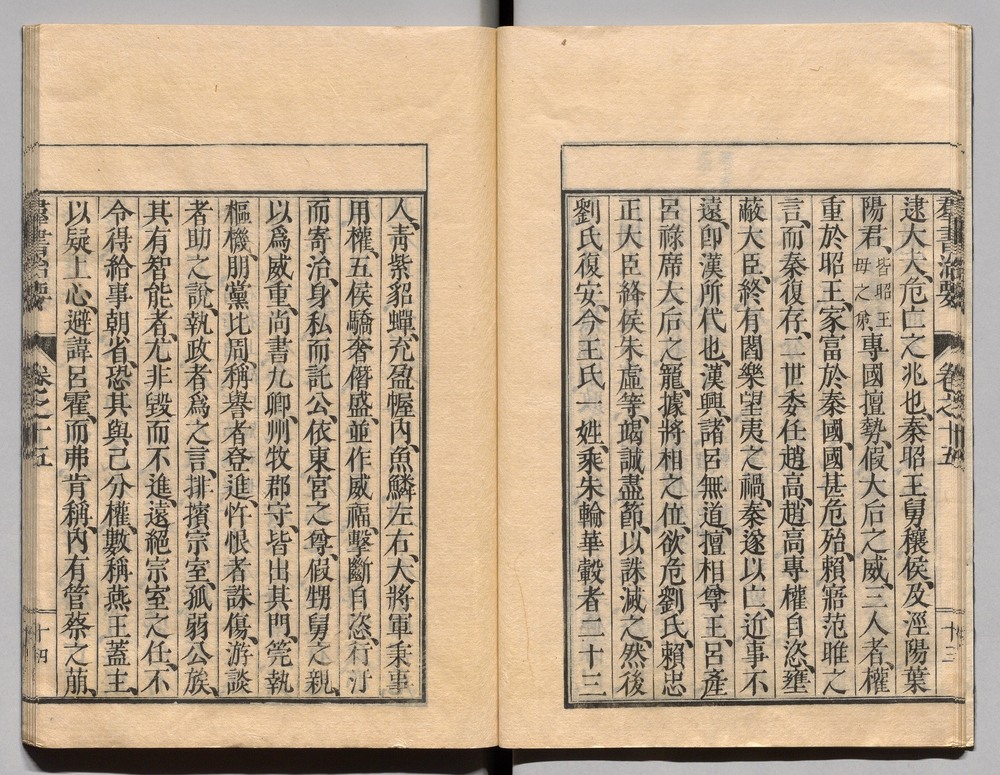 羣書治要 卷之十五 十三
逮大夫、危亡之兆也、秦昭王舅穰侯、及涇陽葉
陽君、皆昭王母之弟、專國擅勢、假大后之威、三人者、權
重於昭王、家富於秦國、國甚危殆、賴寤范雎之
言、而秦復存、二世委任趙高、趙高專權自恣、壅
蔽大臣、終有閻樂望夷之禍、秦遂以亡、近事不
遠、卽漢所代也、漢興、諸呂無道、擅相尊王、呂產
呂祿席大后之寵、據將相之位、欲危劉氏、賴忠
正大臣絳侯朱虛等、竭誠盡節、以誅滅之、然後
劉氏復安、今王氏一姓、乘朱輪華轂者二十三
人、靑紫貂蟬、充盈幄內、魚鱗左右、大將軍秉事
用權、五侯驕奢僭盛、並作威福、擊斷自恣、行汙
而寄治、身私而託公、依東宮之尊、假甥舅之親、
以爲威重、尚書九卿、州牧郡守、皆出其門、筦執
樞機、朋黨比周、稱譽者登進、忤恨者誅傷、游談
者助之說、執政者爲之言、排擯宗室、孤弱公族、
其有智能者、尤非毀而不進、遠絕宗室之任、不
令得給事朝省、恐其與己分權、數稱燕王蓋主、
以疑上心、避諱呂霍、而弗肯稱、內有管蔡之萠、
羣書治要 卷之十五 十四